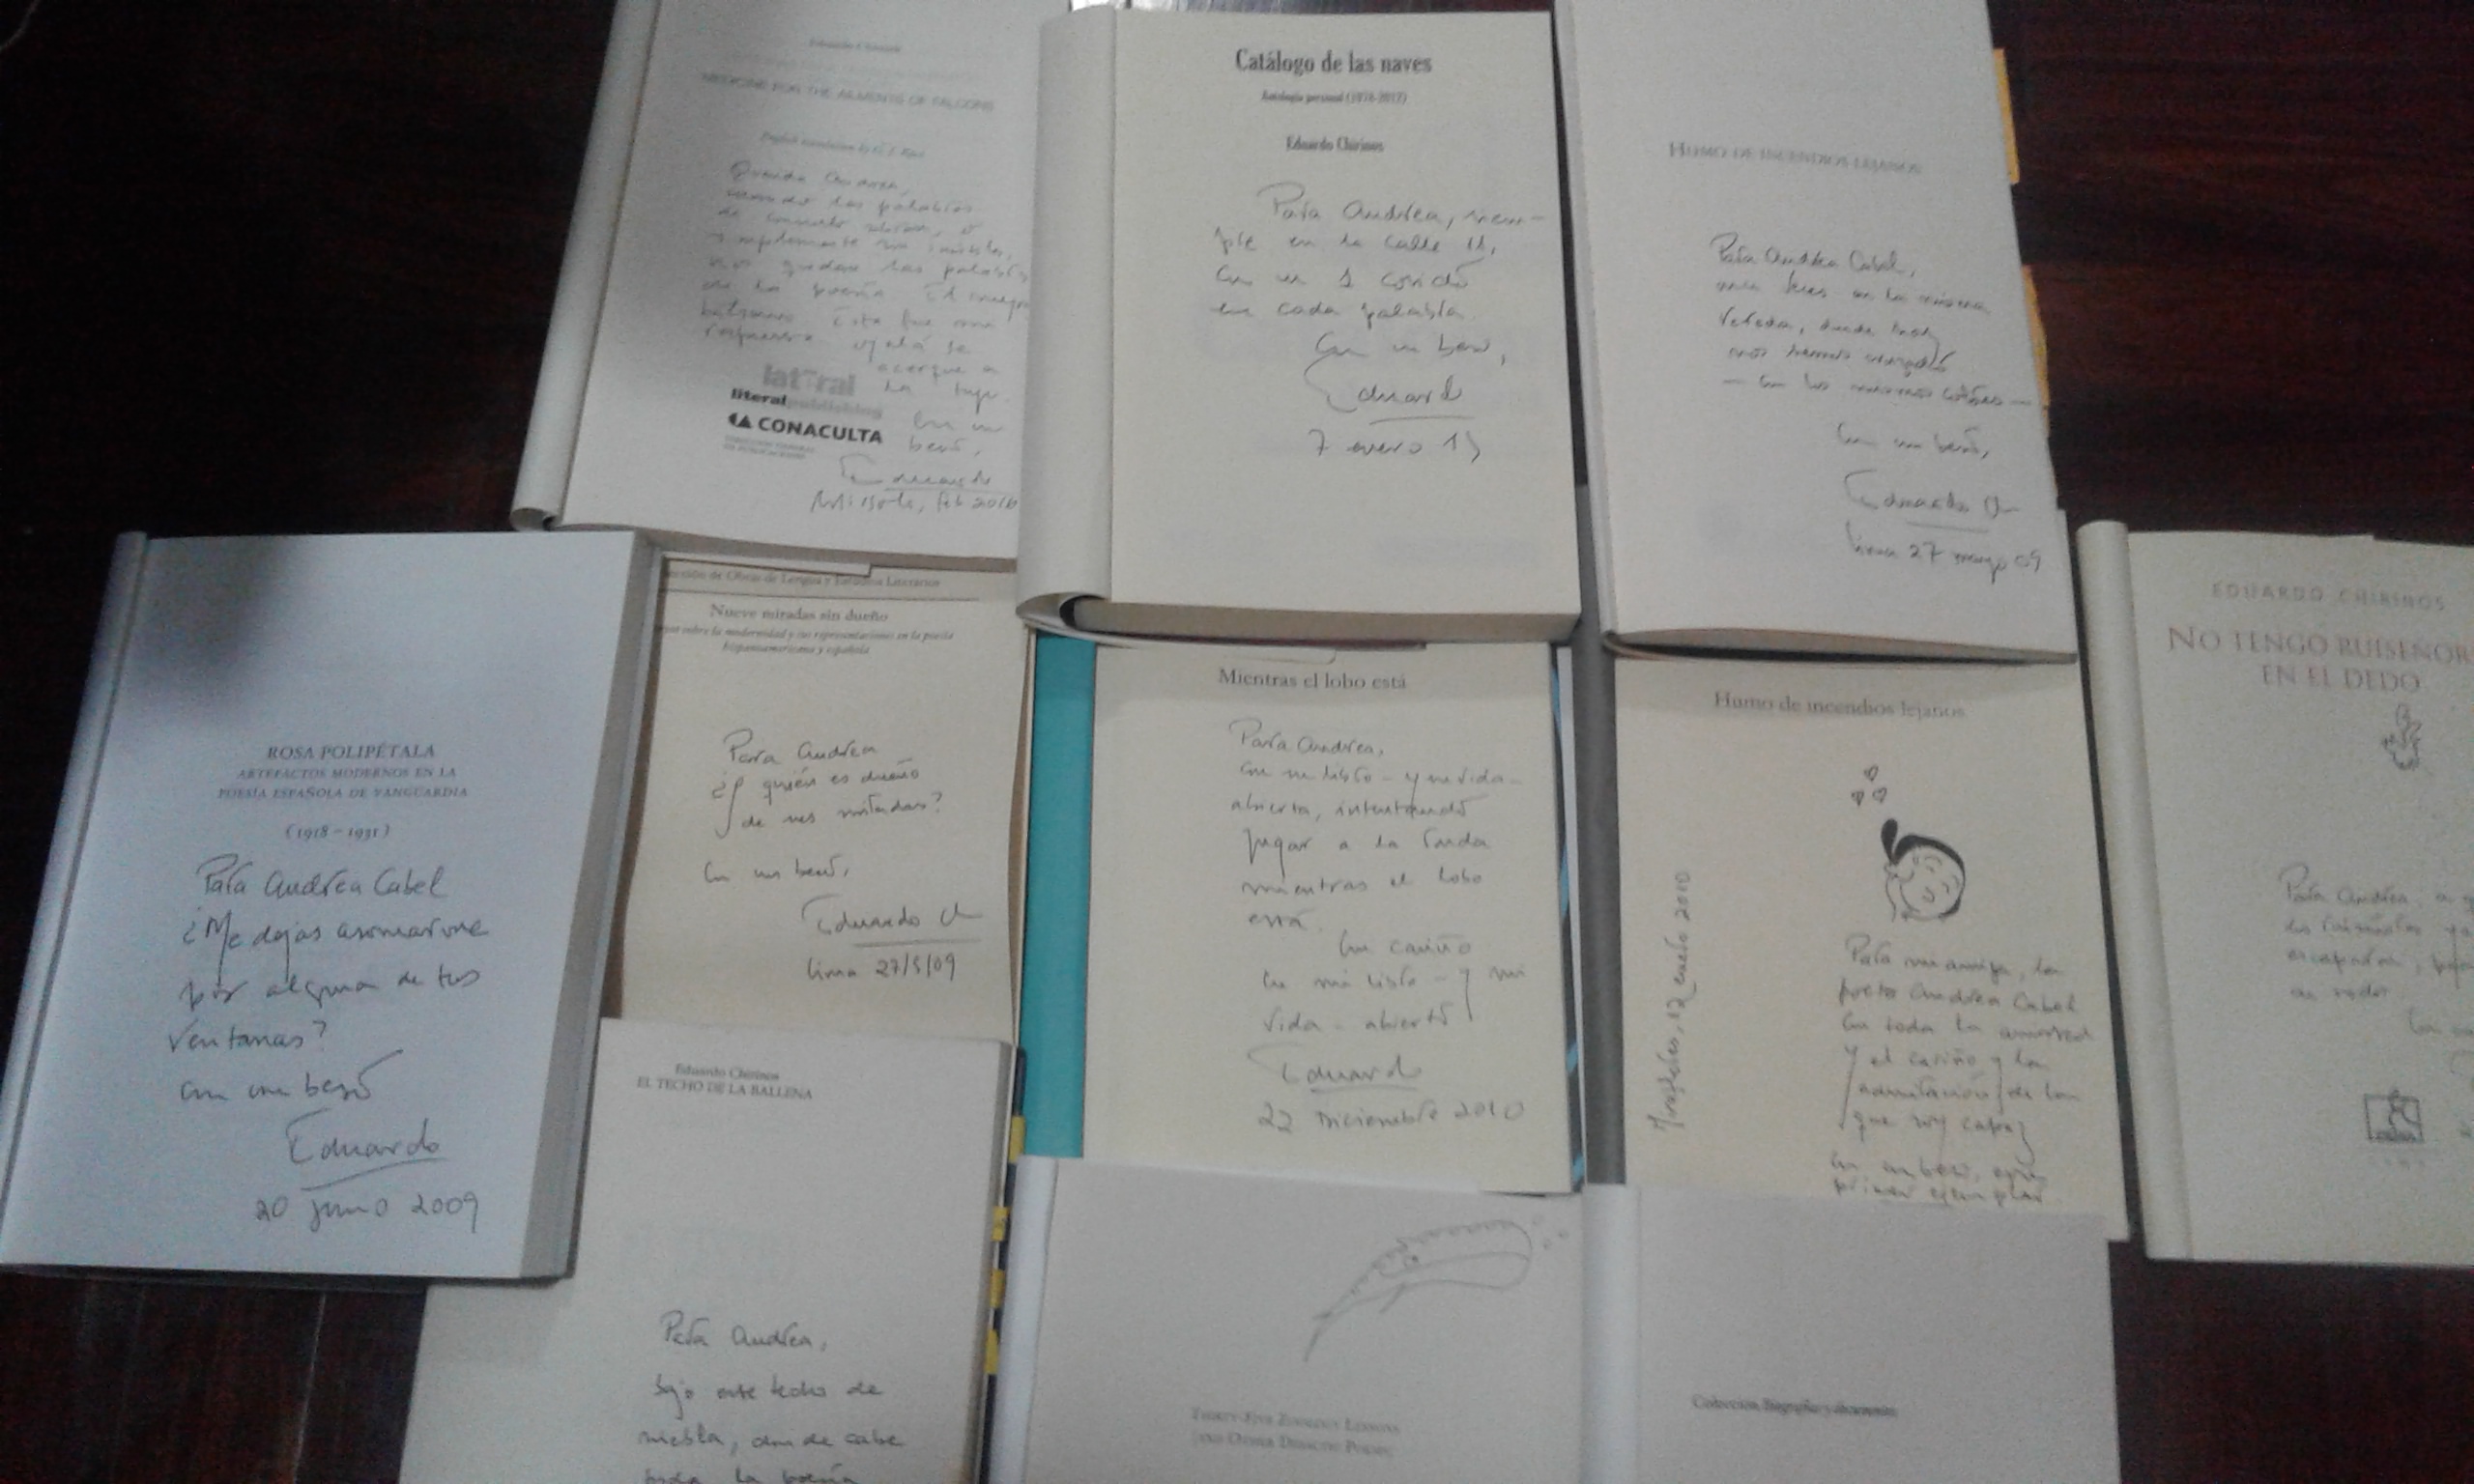 Eduardo Chirinos
MEDICINE FOR THE AILMENTS OF FALCONS
English translation by G. J.
Querida Andrea,
las palabras
de consuelo
simplemente son inútiles,
nos quedan las palabras
de la poesía. El mejor
bálsamo. Este fue mi
respuesta ojalá se
acerque a
la tuya.
lateral
literalpublishing
CONACULTA
Con un
beso,
Eduardo
Missoula, feb 2010
Catálogo de las naves
Antología personal (1978-2012)
Eduardo Chirinos
Para Andrea, siem-
pre en la calle 11,
con un 1 corido
en cada palabra.
Con un beso,
Eduardo
7 enero 13
HUMO DE INCENDIOS LEJANOS
Para Andrea Cabel,
en la misma
vereda, donde
nos hemos cruzado
— con los mismos —
Con un beso,
Eduardo Ch
Lima 27 mayo 09
ROSA POLIPÉTALA
ARTEFACTOS MODERNOS EN LA
POESÍA ESPAÑOLA DE VANGUARDIA
(1918 – 1931)
Para Andrea Cabel
¿Me dejas asomarme
por alguna de tus
ventanas?
Con un beso
Eduardo
20 junio 2009
ción de Obras de Lengua y Estudios Literarios
Nueve miradas sin dueño
sobre la modernidad y sus representaciones en la poesía
hispanoamericana y española
Para Andrea
¿y quién es dueño
de mis miradas?
Con un beso,
Eduardo Ch
Lima 27/5/09
Mientras el lobo está
Para Andrea,
con mi libro – y mi vida –
abierta, intentando
jugar a la ronda
mientras el lobo
está.
Con cariño
con mi libro – y mi
vida – abierto
Eduardo
22 Diciembre 2010
Humo de incendios lejanos
Móstoles, 12 enero 2010
Para mi amiga, la
poeta Andrea Cabel
con toda la amistad
y el cariño y la
admiración de los
que soy capaz
Con un beso, este
primer ejemplar
EDUARDO CHIRINOS
NO TENGO RUISEÑOR
EN EL DEDO
Para Andrea, a q
los ruiseñores ya
escaparon,
su
Con
Eduardo Chirinos
EL TECHO DE LA BALLENA
Para Andrea,
bajo este techo de
niebla, donde cabe
toda la poesía
THIRTY-FIVE ZOOLOGY LESSONS
(AND OTHER DIDACTIC POEMS)
Colección Biografías y documentos